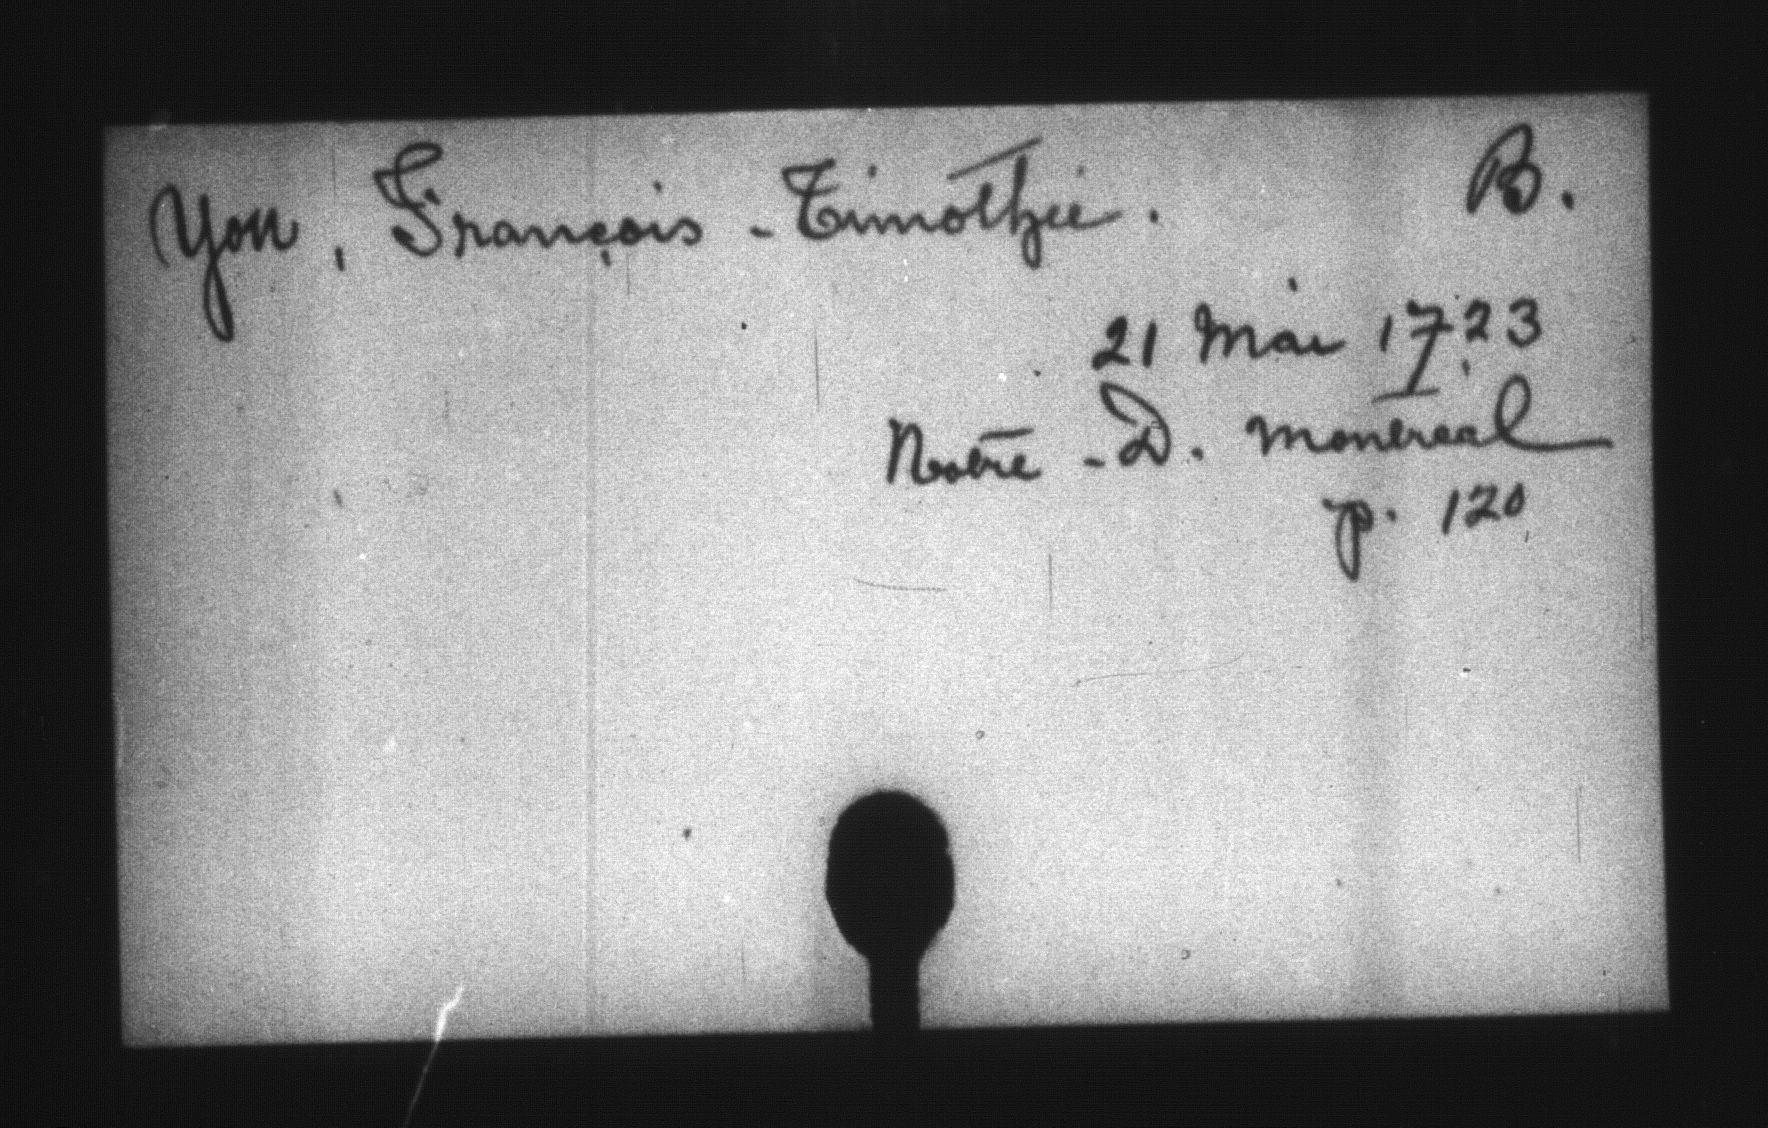 You, François - Timothée. B.
21 Mai 1723
Notre - D. Montréal
p. 120